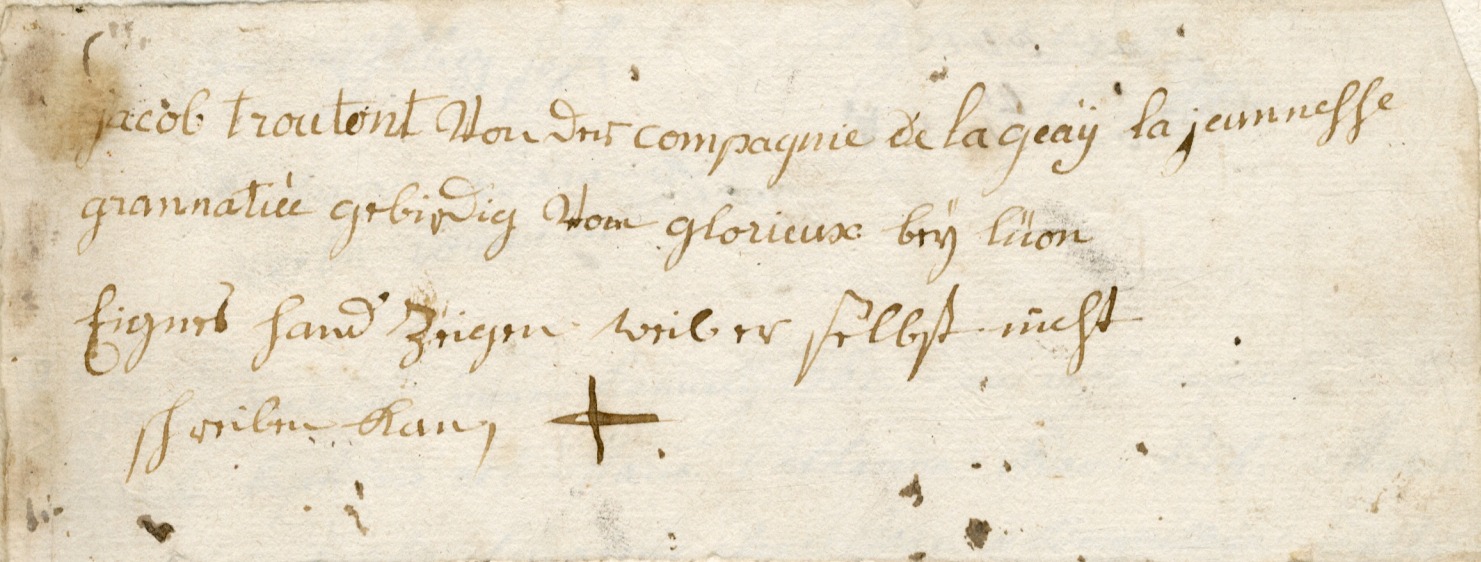 jacob troutont Von der compagnie de lageaÿ la jeunnesse
grannatiée gebirdig Von glorieux beÿ lüon
Eignes hand Zeigen weil er selbst nicht
schreiben kan,